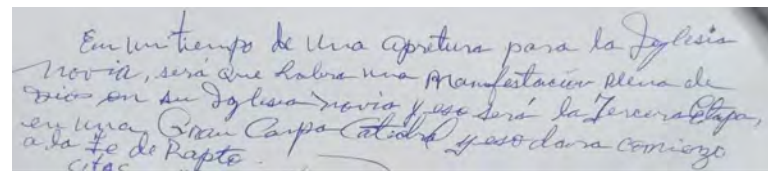 En un tiempo de Una apretura para la Iglesia
novia, será que habra una Manifestación plena de
Dios en su Iglesia novia y eso será la Tercera Etapa,
en una Gran Carpa Catedral y eso dara comienzo
a la Fe de Rapto.
Citas